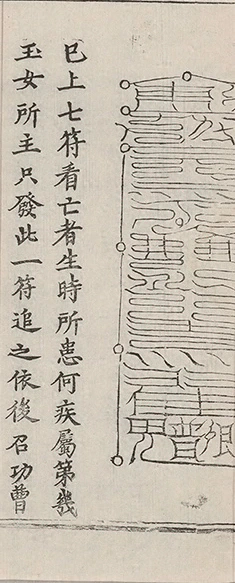 已上七符看亡者生時所患何疾屬第幾
玉女所主只發此一符追之依後召功曹